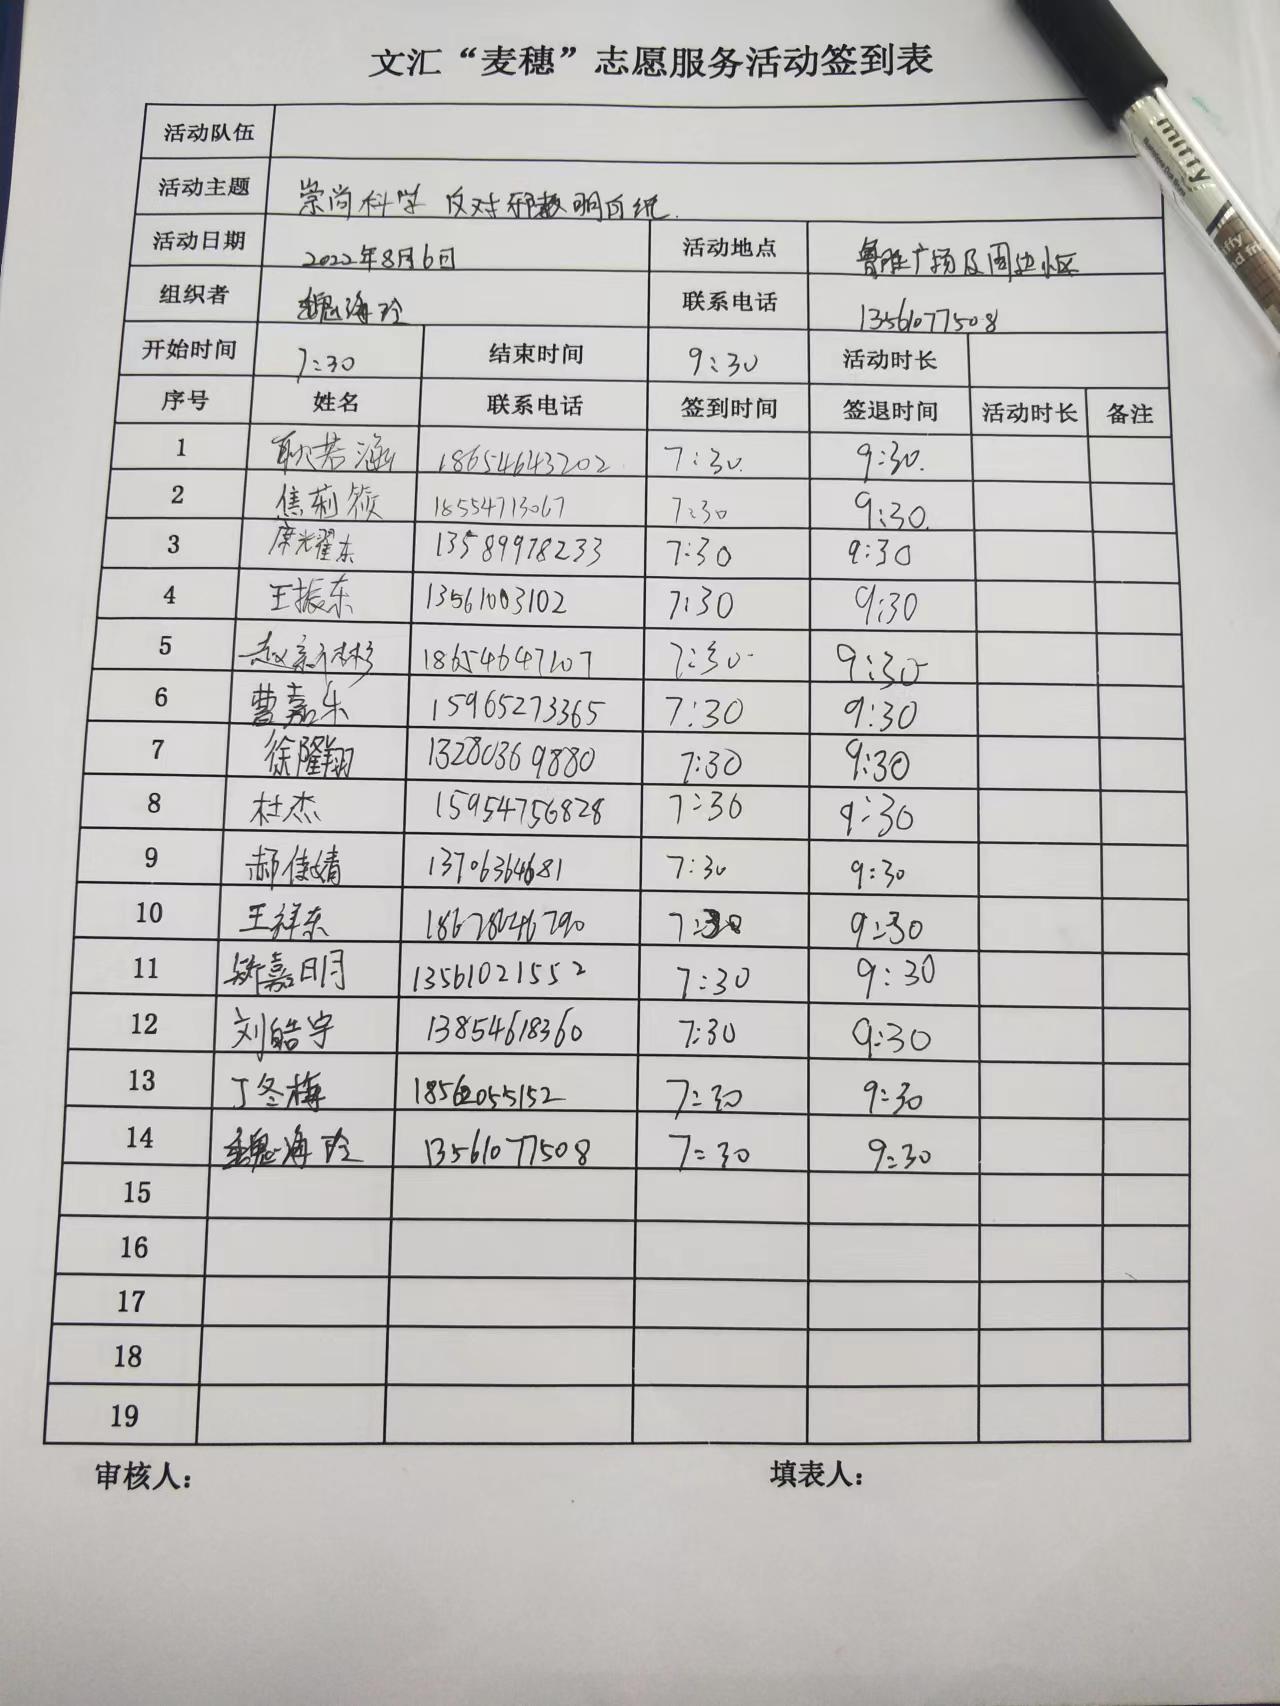 文汇“麦穗”志愿服务活动签到表
活动队伍
活动主题 崇尚科学 反对邪教明白纸
活动日期 2022年8月6日 活动地点 广场及周边小区
组织者 魏海玲 联系电话 13561077508
开始时间 7:30 结束时间 9:30 活动时长
序号 姓名 联系电话 签到时间 签退时间 活动时长 备注
1 耿若涵 18654643202 7:30 9:30
2 焦莉筱 18554713067 7:30 9:30
3 席光耀东 13589978233 7:30 9:30
4 王振东 13561003102 7:30 9:30
5 18654647107 7:30 9:30
6 曹嘉乐 15965273365 7:30 9:30
7 徐隆翔 13280369880 7:30 9:30
8 杜杰 15954756828 7:30 9:30
9 郝佳婧 13706364681 7:30 9:30
10 王祥东 18678646790 7:30 9:30
11 嘉明 13561021552 7:30 9:30
12 刘皓宇 13854618360 7:30 9:30
13 丁冬梅 18562055152 7:30 9:30
14 魏海玲 13561077508 7:30 9:30
15
16
17
18
19
审核人： 填表人：
miffy